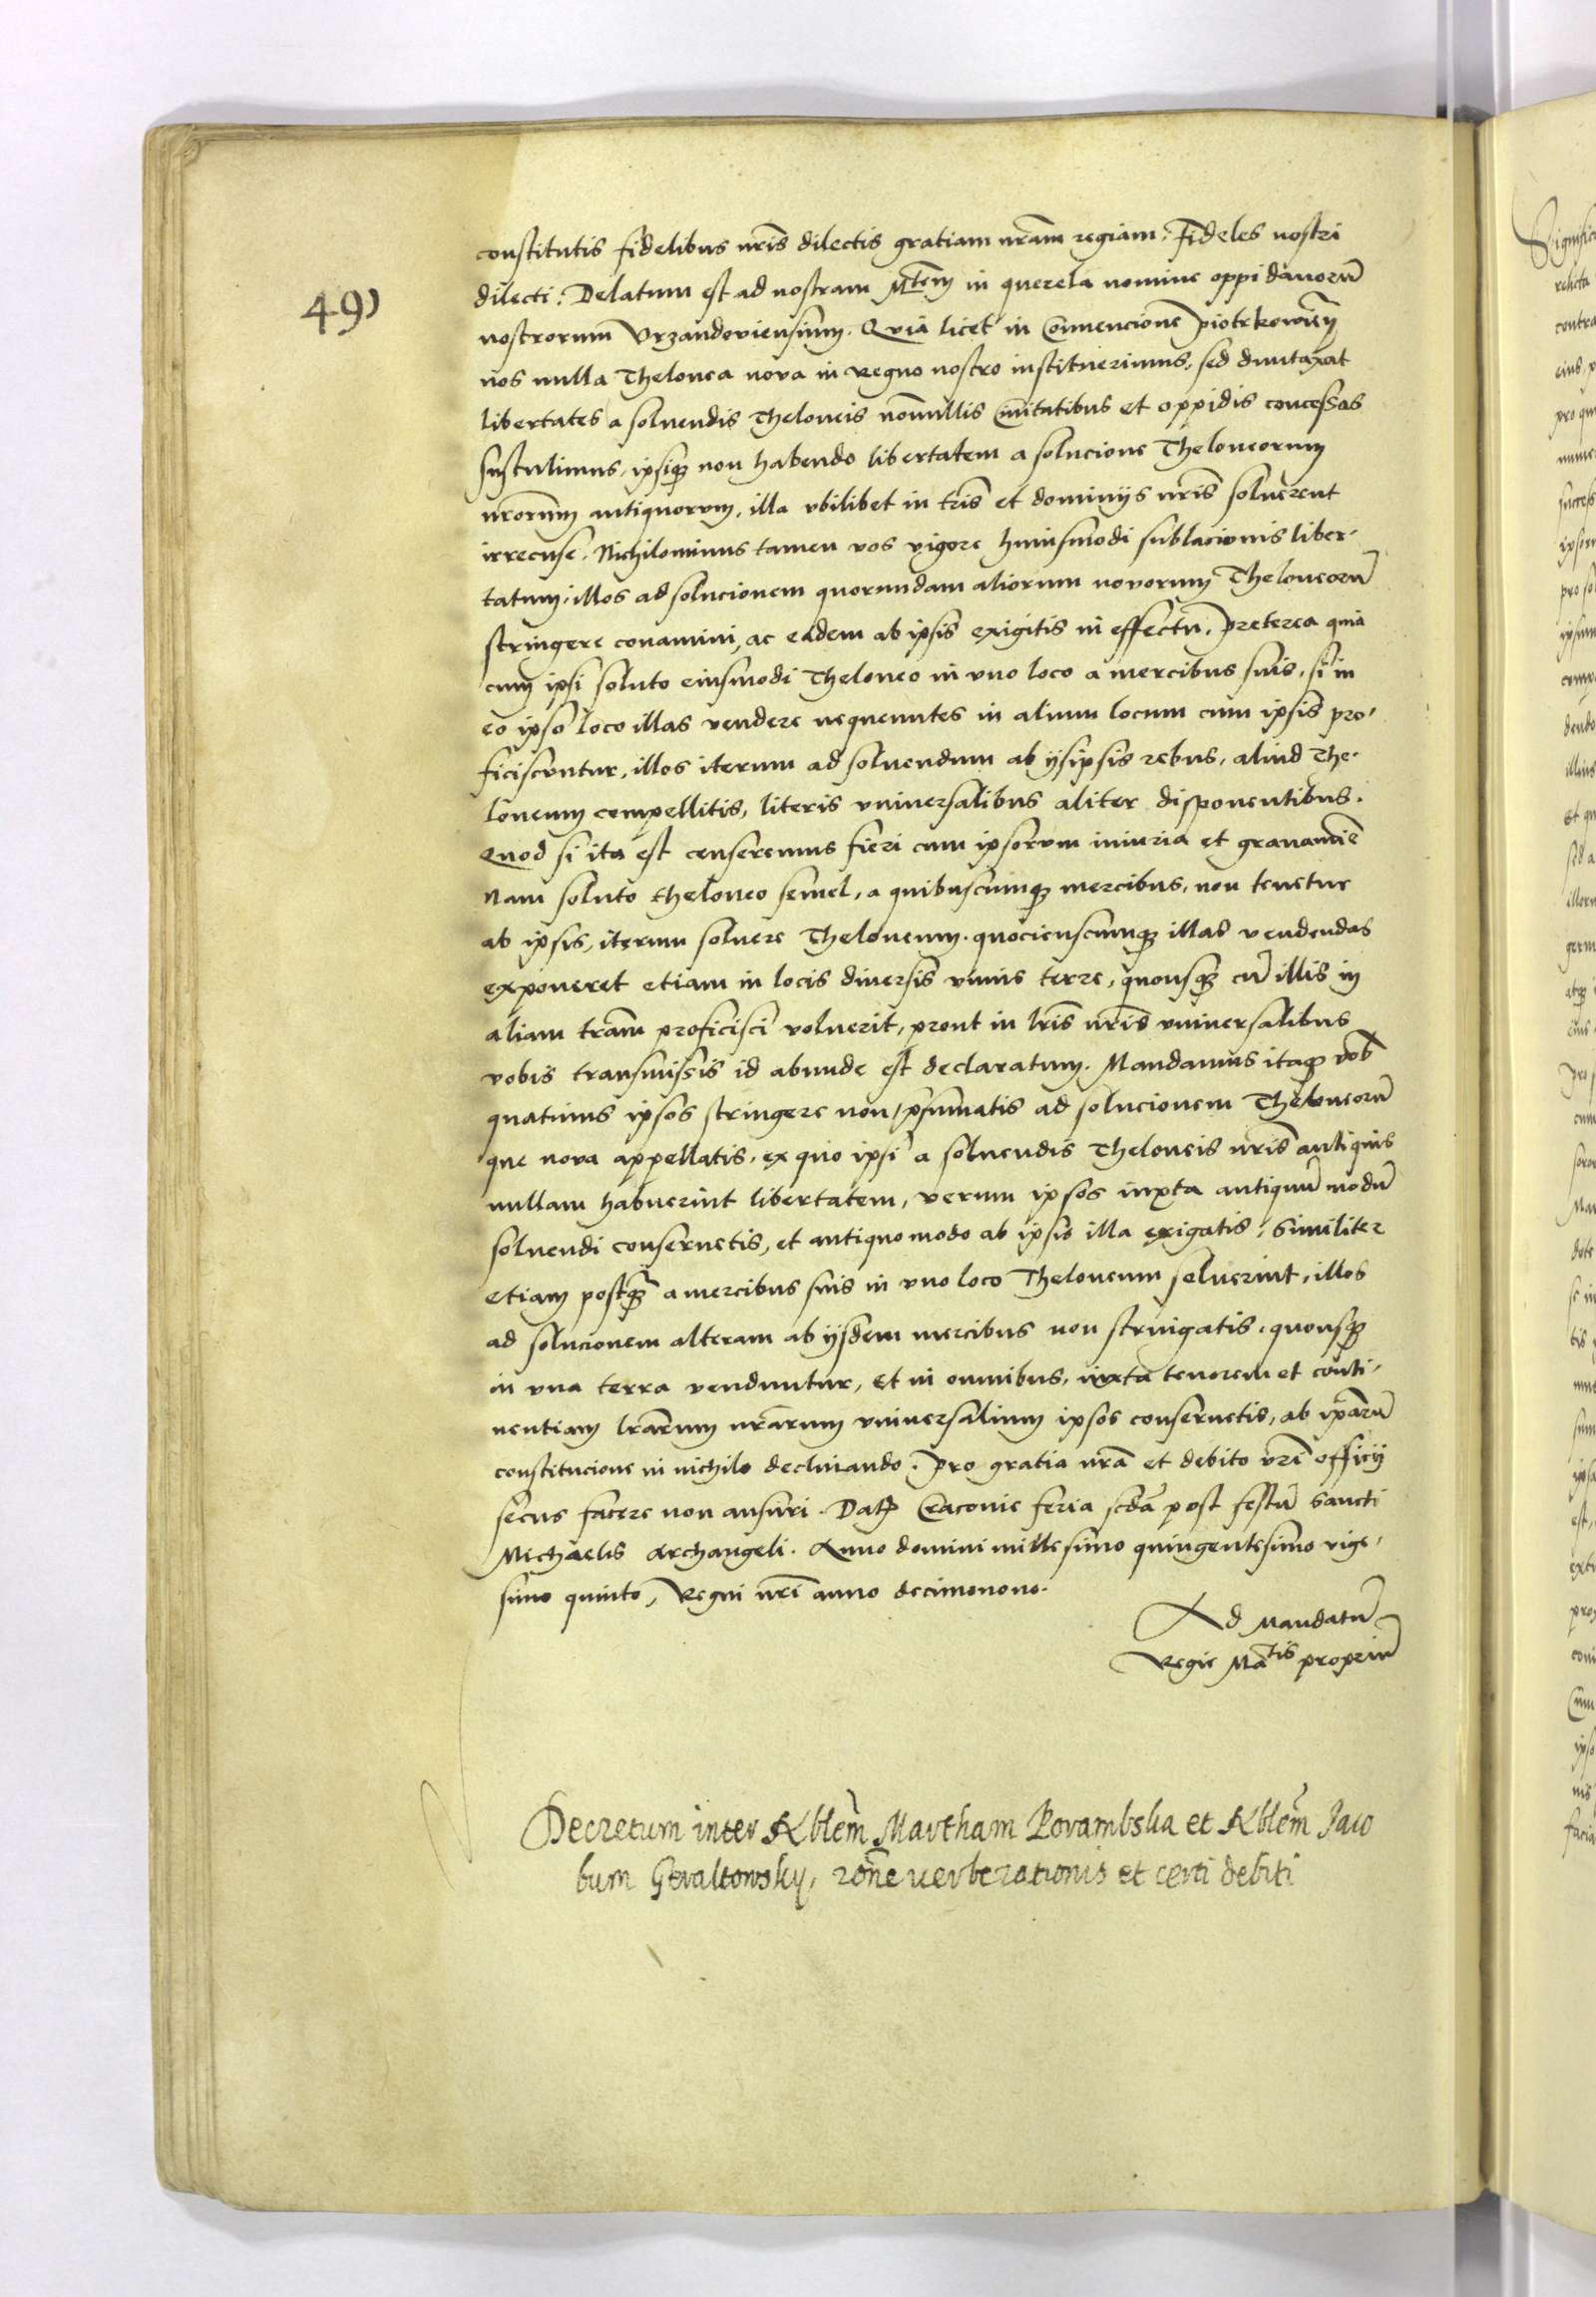 constitutis fidelibus nrīs dilectis gratiam nrām regiam. Fideles nostri
49)
dilecti. Delatum est ad nostram Mtem in querela nomine oppidanorū
nostrorum Vrzandoviensium. Quia licet in Convencione piotrkowieñ
nos nulla Thelonea nova in Regno nostro instituerimus, sed duntaxat
libertates a solvendis Theloneis nōnullis Civitatibus et oppidis concessas
sustulimus, ipsiqz non habendo libertatem a solucione Theloneorum
nrōrum antiquorum, illa vbilibet in trīs et dominijs nrīs solverent
irrecuse. Nichilominus tamen vos vigore huiusmodi sublacionis liber-
tatum, illos ad solucionem quorundam aliorum novorum Theloneorū
stringere conamini, ac eadem ab ipsis exigitis in effectu, preterea quia
cum ipsi soluto eiusmodi Theloneo in vno loco a mercibus suis, si in
eo ipso loco illas vendere nequeuntes in alium locum cum ipsis pro-
ficiscuntur, illos iterum ad solvendum ab ijsipsis rebus, aliud The-
loneum compellitis, literis vniversalibus aliter disponentibus.
Quod si ita est censeremus fieri cum ipsorum iniuria et gravamīe
Nam soluto theloneo semel, a quibuscumqz mercibus, non tenetur
ab ipsis, iterum solvere Theloneum. quociescumqz illas vendendas
exponeret etiam in locis diversis vnius terre, quousqz cū illis in
aliam trām proficisci voluerit, prout in lrīs nrīs vniversalibus
vobis transmissis id abunde est declaratum. Mandamus itaqz vob
quatinus ipsos stringere non psumatis ad solucionem Theloneorū
que nova appellatis, ex quo ipsi a solvendis Theloneis nrīs antiquis
nullam habuerint libertatem, verum ipsos iuxta antiquū modū
solvendi conservetis, et antiquo modo ab ipsis illa exigatis, similiter
etiam postqz a mercibus suis in vno loco Theloneum solverint, illos
ad solucionem alteram ab ijsdem mercibus non stringatis, quousqz
in vna terra venduntur, et in omnibus, iuxta tenorem et conti-
nentiam lrārum nrārum vniversalium ipsos conservetis, ab ipārū
constitucione in nichilo declinando. Pro gratia nrā et debito vrī officij
secus facere non ausuri. Dat Cracovie feria scdā post festū Sancti
Michaelis Archangeli. Anno domini millesimo quingentesimo vige-
simo quinto, Regni nrī anno decimonono.
Ad Mandatū
Regie Mātis propriū
Decretum inter Nblēm Martham Porambska et Nblēm Jaco
bum Gieraltowsky, rōne verberationis et certi debiti